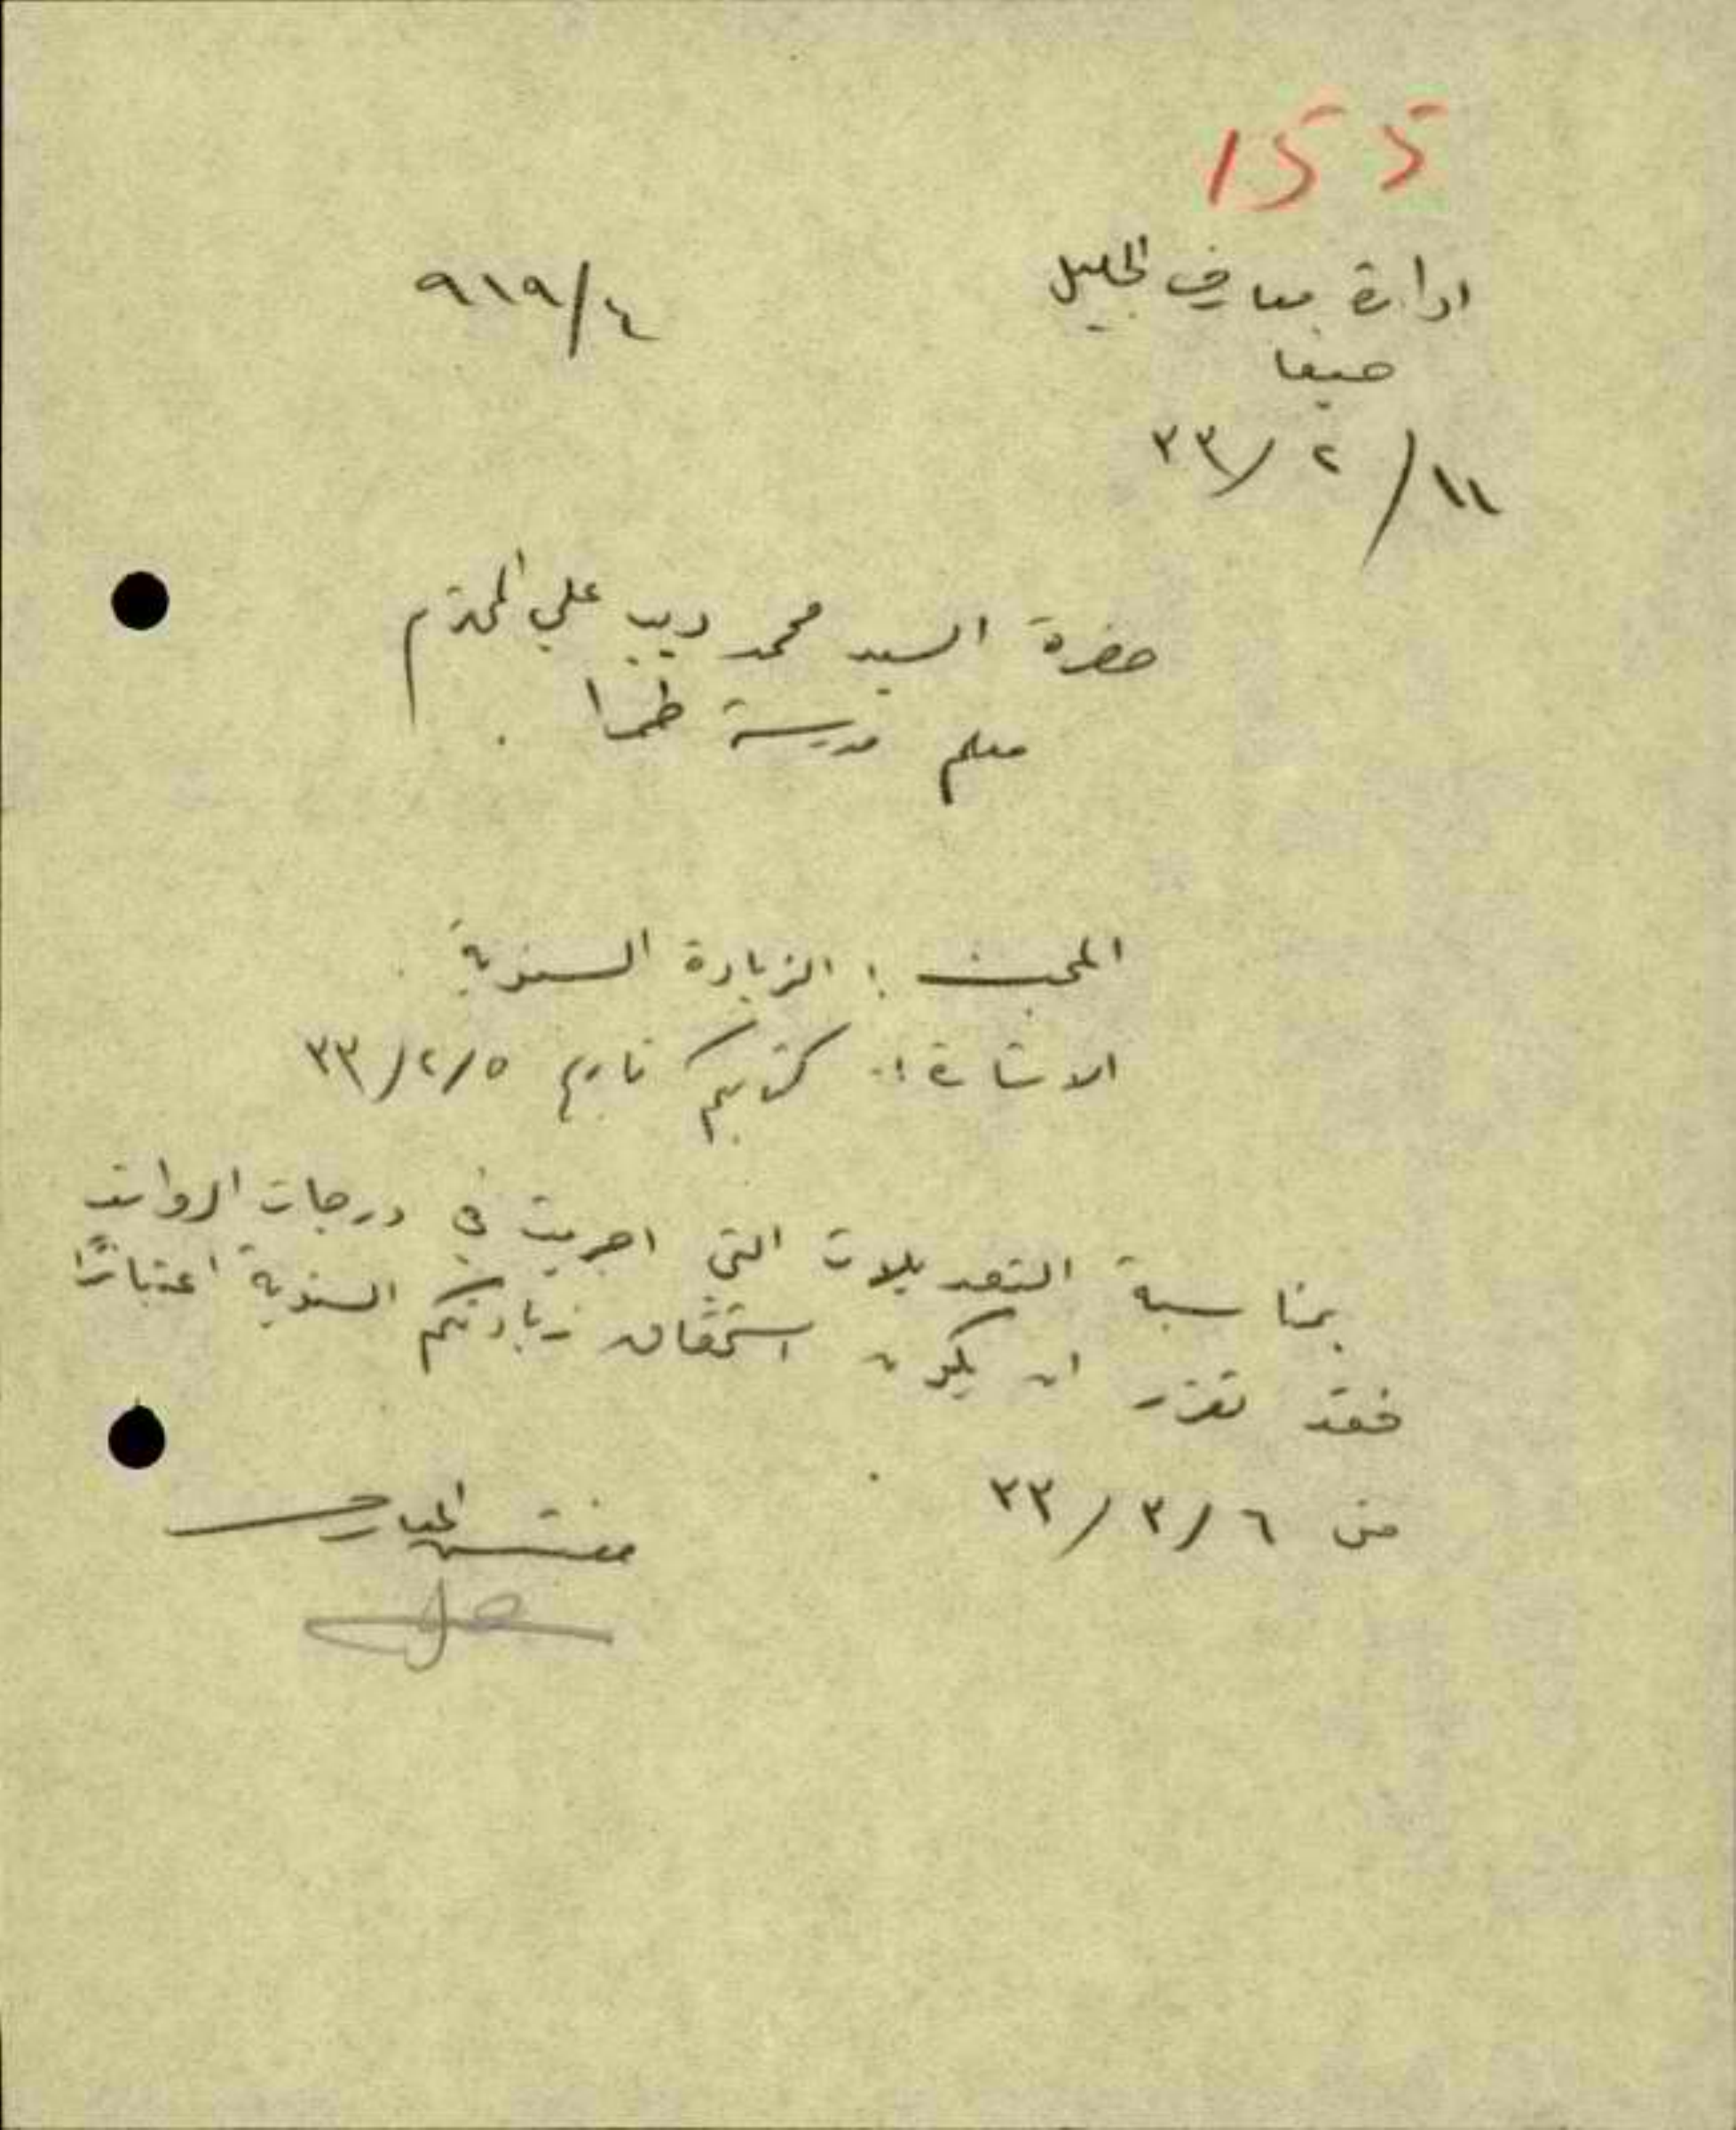 155
ادارة معارف الجليل
٩١٩/٤
حيفا
١١/٢/٣٣
حضرة السيد محمد ديب علي المحترم
معلم مدرسة طمرا .
المبحث : الزيادة السنوية .
الاشارة : كتابكم تاريخ ٣٣/٢/٥
بمناسبة التعديلات التي اجريت في درجات الرواتب
فقد تقرر ان يكون استحقاق زيادتكم السنوية اعتبارًا
من ٣٣/٣/٦ .
مفتش المعارف